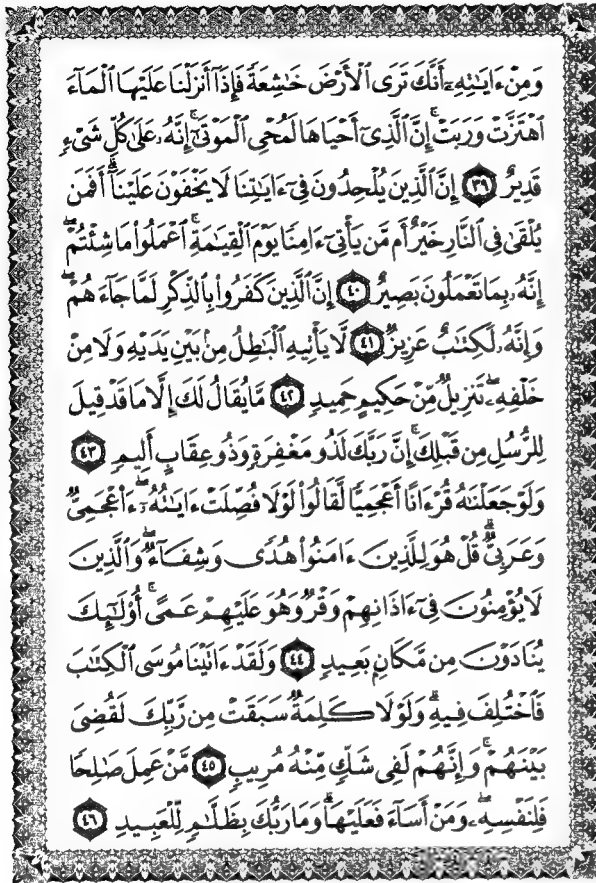 وَمِنْ ءَايَـٰتِهِۦٓ أَنَّكَ تَرَى ٱلْأَرْضَ خَـٰشِعَةً فَإِذَآ أَنزَلْنَا عَلَيْهَا ٱلْمَآءَ
ٱهْتَزَّتْ وَرَبَتْ ۚ إِنَّ ٱلَّذِىٓ أَحْيَاهَا لَمُحْىِ ٱلْمَوْتَىٰٓ ۚ إِنَّهُۥ عَلَىٰ كُلِّ شَىْءٍ
قَدِيرٌ ٣٩ إِنَّ ٱلَّذِينَ يُلْحِدُونَ فِىٓ ءَايَـٰتِنَا لَا يَخْفَوْنَ عَلَيْنَآ ۗ أَفَمَن
يُلْقَىٰ فِى ٱلنَّارِ خَيْرٌ أَم مَّن يَأْتِىٓ ءَامِنًا يَوْمَ ٱلْقِيَـٰمَةِ ۚ ٱعْمَلُوا۟ مَا شِئْتُمْ ۖ
إِنَّهُۥ بِمَا تَعْمَلُونَ بَصِيرٌ ٤٠ إِنَّ ٱلَّذِينَ كَفَرُوا۟ بِٱلذِّكْرِ لَمَّا جَآءَهُمْ ۖ
وَإِنَّهُۥ لَكِتَـٰبٌ عَزِيزٌ ٤١ لَّا يَأْتِيهِ ٱلْبَـٰطِلُ مِنۢ بَيْنِ يَدَيْهِ وَلَا مِنْ
خَلْفِهِۦ ۖ تَنزِيلٌ مِّنْ حَكِيمٍ حَمِيدٍ ٤٢ مَّا يُقَالُ لَكَ إِلَّا مَا قَدْ قِيلَ
لِلرُّسُلِ مِن قَبْلِكَ ۚ إِنَّ رَبَّكَ لَذُو مَغْفِرَةٍ وَذُو عِقَابٍ أَلِيمٍ ٤٣
وَلَوْ جَعَلْنَـٰهُ قُرْءَانًا أَعْجَمِيًّا لَّقَالُوا۟ لَوْلَا فُصِّلَتْ ءَايَـٰتُهُۥٓ ۖ ءَا۬عْجَمِىٌّ
وَعَرَبِىٌّ ۗ قُلْ هُوَ لِلَّذِينَ ءَامَنُوا۟ هُدًى وَشِفَآءٌ ۖ وَٱلَّذِينَ
لَا يُؤْمِنُونَ فِىٓ ءَاذَانِهِمْ وَقْرٌ وَهُوَ عَلَيْهِمْ عَمًى ۚ أُو۟لَـٰٓئِكَ
يُنَادَوْنَ مِن مَّكَانٍۭ بَعِيدٍ ٤٤ وَلَقَدْ ءَاتَيْنَا مُوسَى ٱلْكِتَـٰبَ
فَٱخْتُلِفَ فِيهِ ۗ وَلَوْلَا كَلِمَةٌ سَبَقَتْ مِن رَّبِّكَ لَقُضِىَ
بَيْنَهُمْ ۚ وَإِنَّهُمْ لَفِى شَكٍّ مِّنْهُ مُرِيبٍ ٤٥ مَّنْ عَمِلَ صَـٰلِحًا
فَلِنَفْسِهِۦ ۖ وَمَنْ أَسَآءَ فَعَلَيْهَا ۗ وَمَا رَبُّكَ بِظَلَّـٰمٍ لِّلْعَبِيدِ ٤٦